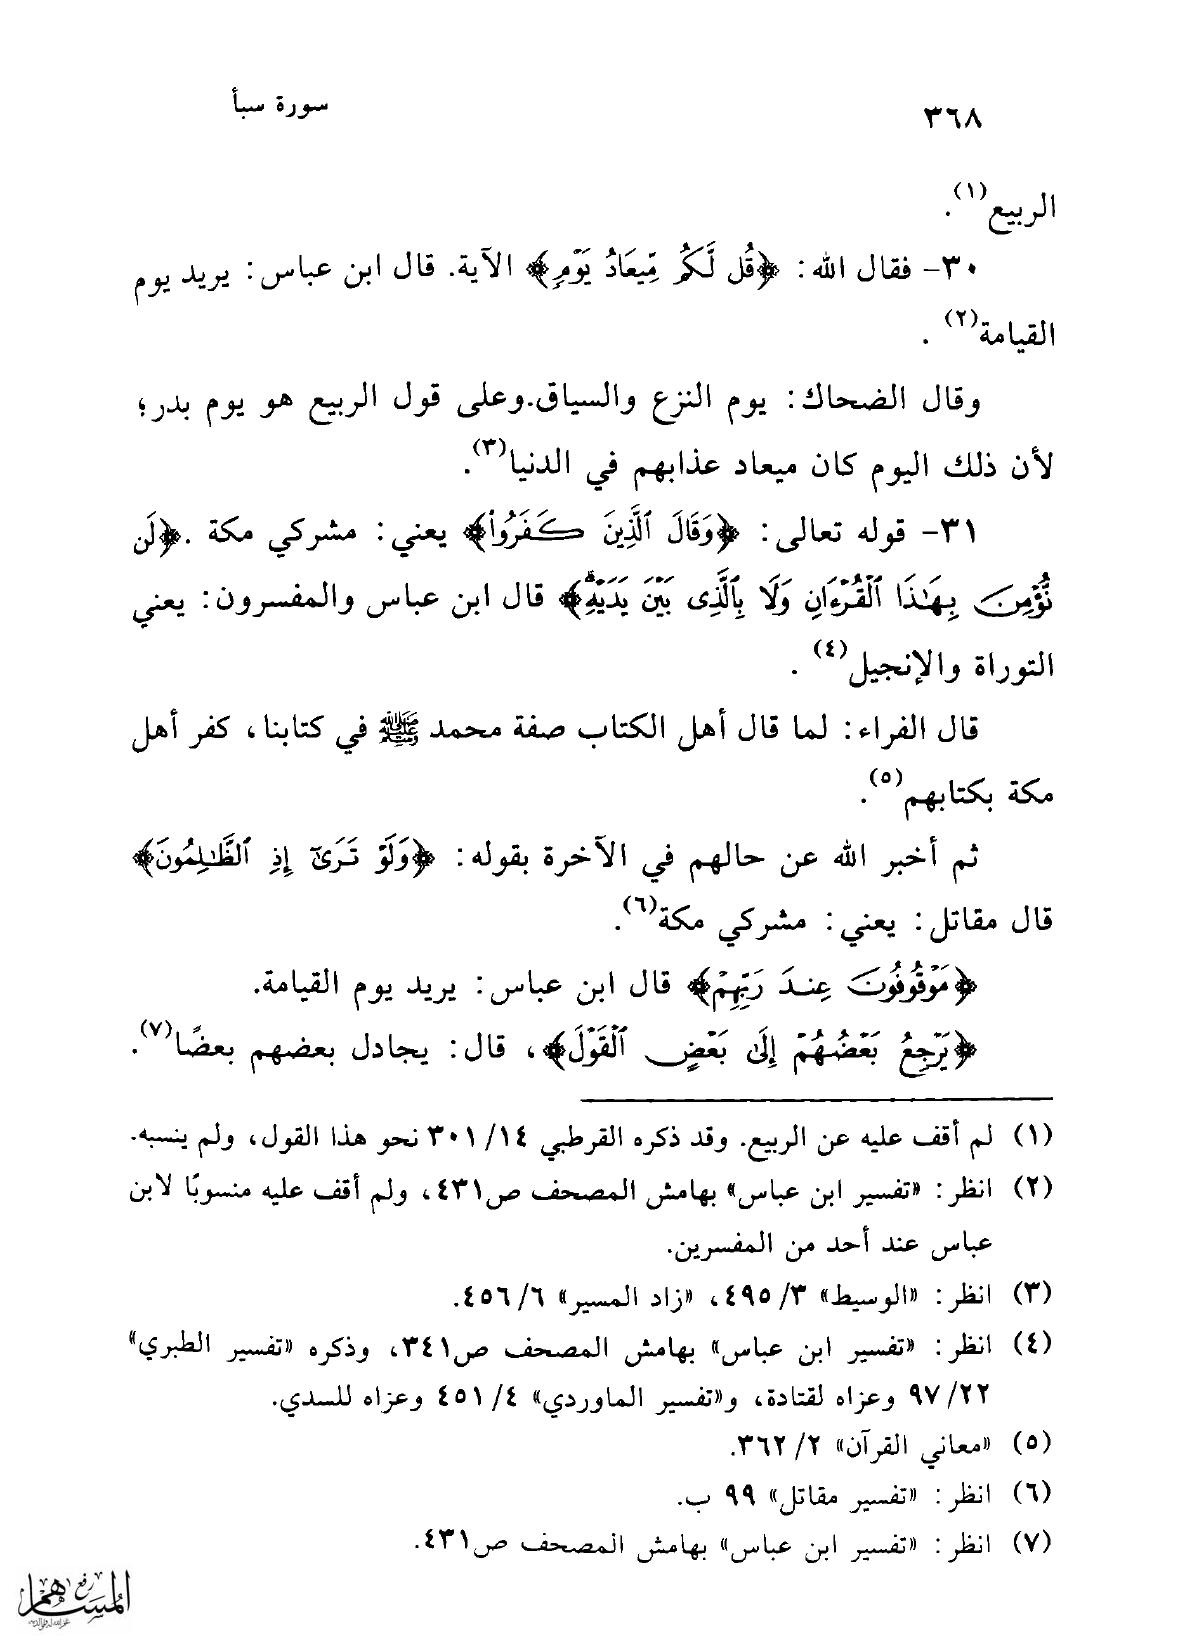 ٣٦٨ سورة سبأ
الربيع(١).
٣٠- فقال الله: ﴿قُل لَّكُم مِّيعَادُ يَوْمٍ﴾ الآية. قال ابن عباس: يريد يوم
القيامة(٢) .
وقال الضحاك: يوم النزع والسياق.وعلى قول الربيع هو يوم بدر؛
لأن ذلك اليوم كان ميعاد عذابهم في الدنيا(٣).
٣١- قوله تعالى: ﴿وَقَالَ ٱلَّذِينَ كَفَرُواْ﴾ يعني: مشركي مكة .﴿لَن
نُّؤْمِنَ بِهَٰذَا ٱلْقُرْءَانِ وَلَا بِٱلَّذِى بَيْنَ يَدَيْهِۗ﴾ قال ابن عباس والمفسرون: يعني
التوراة والإنجيل(٤) .
قال الفراء: لما قال أهل الكتاب صفة محمد ﷺ في كتابنا، كفر أهل
مكة بكتابهم(٥).
ثم أخبر الله عن حالهم في الآخرة بقوله: ﴿وَلَوْ تَرَىٰٓ إِذِ ٱلظَّٰلِمُونَ﴾
قال مقاتل: يعني: مشركي مكة(٦).
﴿مَوْقُوفُونَ عِندَ رَبِّهِمْ﴾ قال ابن عباس: يريد يوم القيامة.
﴿يَرْجِعُ بَعْضُهُمْ إِلَىٰ بَعْضٍ ٱلْقَوْلَ﴾، قال: يجادل بعضهم بعضًا(٧).
(١) لم أقف عليه عن الربيع. وقد ذكره القرطبي ١٤/ ٣٠١ نحو هذا القول، ولم ينسبه.
(٢) انظر: «تفسير ابن عباس» بهامش المصحف ص٤٣١، ولم أقف عليه منسوبًا لابن
عباس عند أحد من المفسرين.
(٣) انظر: «الوسيط» ٣/ ٤٩٥، «زاد المسير» ٦/ ٤٥٦.
(٤) انظر: «تفسير ابن عباس» بهامش المصحف ص٣٤١، وذكره «تفسير الطبري»
٢٢/ ٩٧ وعزاه لقتادة، و«تفسير الماوردي» ٤/ ٤٥١ وعزاه للسدي.
(٥) «معاني القرآن» ٢/ ٣٦٢.
(٦) انظر: «تفسير مقاتل» ٩٩ ب.
(٧) انظر: «تفسير ابن عباس» بهامش المصحف ص٤٣١.
رفع
المساهم